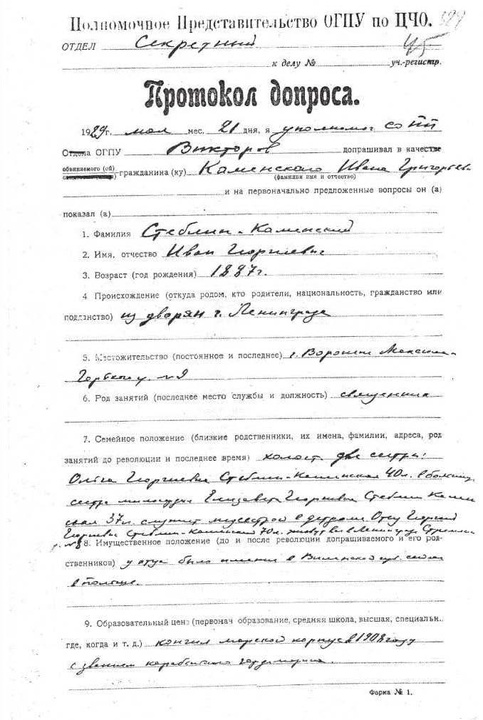 Полномочное Представительство ОГПУ по ЦЧО.
ОТДЕЛ Секретный 45
к делу № уч.-регистр.
Протокол допроса.
1929г. мая мес. 21 дня, я уполномоч СО ПП
Отдела ОГПУ Викторов допрашивал в качестве
обвиняемого (ой) гражданина (ку) Каменского Ивана
(фамилия имя и отчество)
и на первоначально предложенные вопросы он (а)
показал (а)
1. Фамилия Стеблин-Каменский
2. Имя, отчество Иван Георгиевич
3. Возраст (год рождения) 1887г.
4 Происхождение (откуда родом, кто родители, национальность, гражданство или
подданство) из дворян г. Ленинграда
5. Местожительство (постоянное и последнее) г. Воронеж
6. Род занятий (последнее место службы и должность) священник
7. Семейное положение (близкие родственники, их имена, фамилии, адреса, род
занятий до революции и последнее время) холост, две сестры:
Ольга Георгиевна Стеблин-Каменская 40л. в больнице
сестра милосердия Елизавета Георгиевна Стеблин Камен
ская 37л. служит в детдоме. Отец Георгий
Георгиевич Стеблин-Каменский 70л. живут в Ленинграде
8. Имущественное положение (до и после революции допрашиваемого и его род-
ственников) у отца было имение в Виленской губ. сейчас
в Польше.
9. Образовательный ценз (первонач образование, средняя школа, высшая, специальн.
где, когда и т. д.) кончил морской корпус в 1908 году
с званием корабельного гардемарина.
Форма № 1.